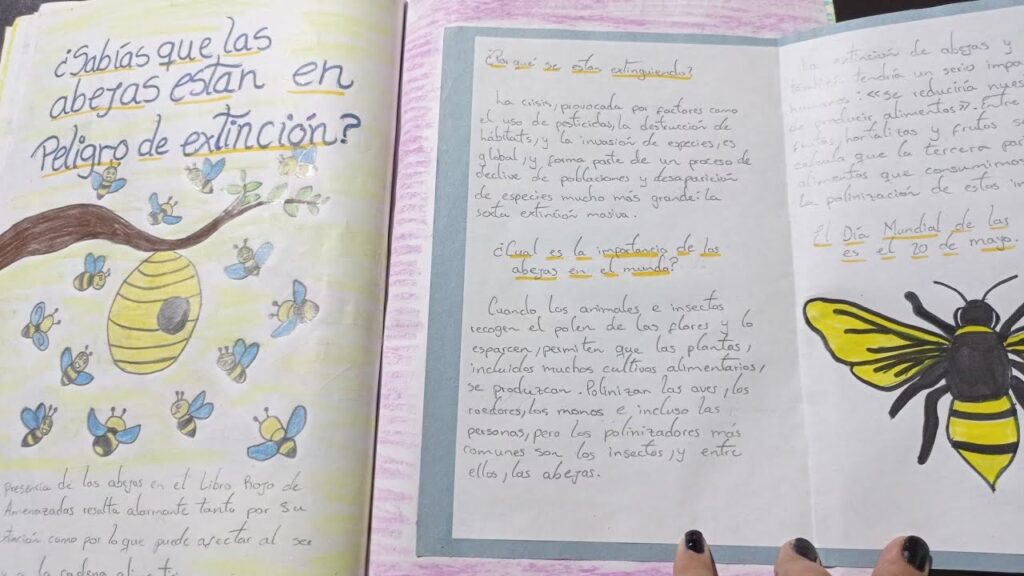 ¿Sabías que las
abejas están en
Peligro de extinción?
Presencia de las abejas en el Libro Rojo de
Amenazadas resulta alarmante tanto por su
como por lo que puede afectar al ser
a la cadena
¿Por qué se están extinguiendo?
La crisis, provocada por factores como
el uso de pesticidas, la destrucción de
hábitats, y la invasión de especies, es
global, y forma parte de un proceso de
declive de poblaciones y desaparición
de especies mucho más grande: la
sexta extinción masiva.
¿Cual es la importancia de las
abejas en el mundo?
Cuando los animales e insectos
recogen el polen de las flores y lo
esparcen, permiten que las plantas,
incluidos muchos cultivos alimentarios,
se produzcan. Polinizan las aves, los
roedores, los monos e, incluso las
personas, pero los polinizadores más
comunes son los insectos, y entre
ellos, las abejas.
La extinción de abejas y
tendría un serio
humanos: «se reduciría
de producir alimentos». Entre
frutas, hortalizas y frutos
calcula que la tercera
alimentos que consumimos
la polinización de estos
El Día Mundial de las
es el 20 de mayo.